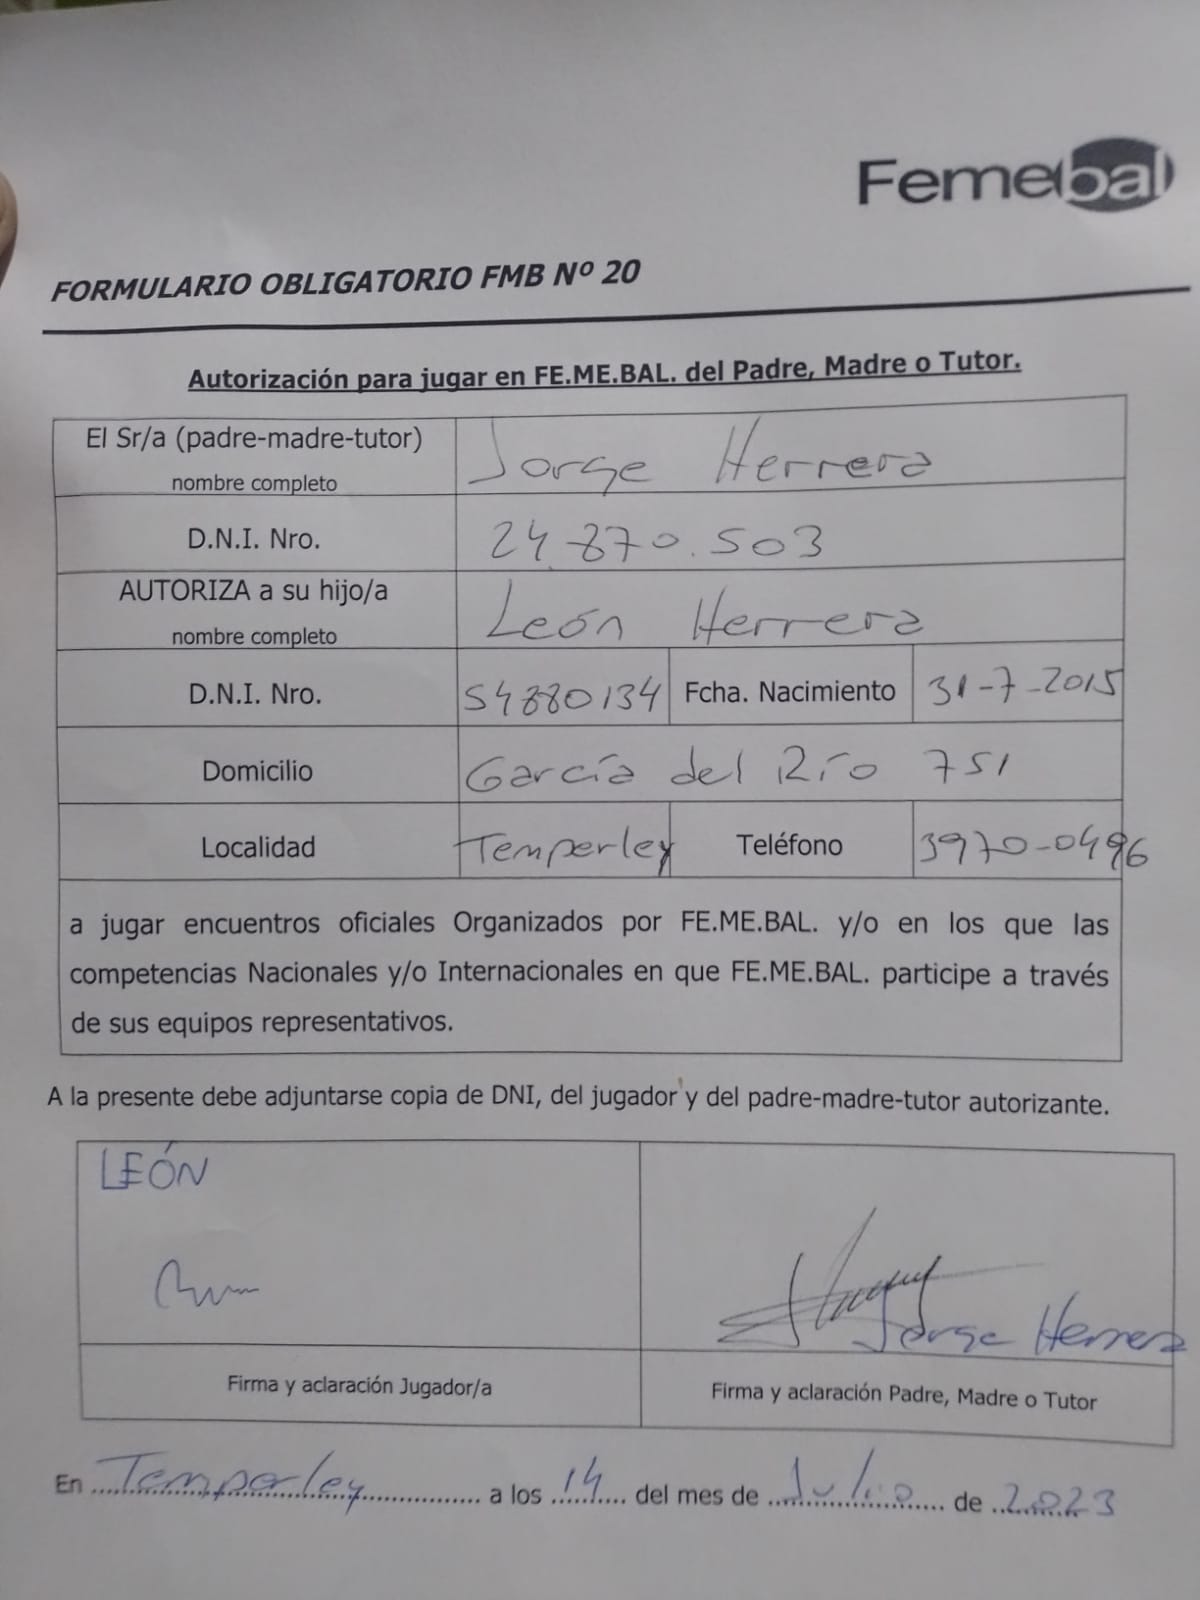 Femebal
FORMULARIO OBLIGATORIO FMB Nº 20
Autorización para jugar en FE.ME.BAL. del Padre, Madre o Tutor.
El Sr/a (padre-madre-tutor)
nombre completo
Jorge Herrera
D.N.I. Nro.
24.870.503
AUTORIZA a su hijo/a
nombre completo
León Herrera
D.N.I. Nro.
54880134
Fcha. Nacimiento
31-7-2015
Domicilio
García del Río 751
Localidad
Temperley
Teléfono
3970-0496
a jugar encuentros oficiales Organizados por FE.ME.BAL. y/o en los que las
competencias Nacionales y/o Internacionales en que FE.ME.BAL. participe a través
de sus equipos representativos.
A la presente debe adjuntarse copia de DNI, del jugador y del padre-madre-tutor autorizante.
LEÓN
Jorge Herrera
Firma y aclaración Jugador/a
Firma y aclaración Padre, Madre o Tutor
En Temperley a los 14 del mes de Julio de 2023